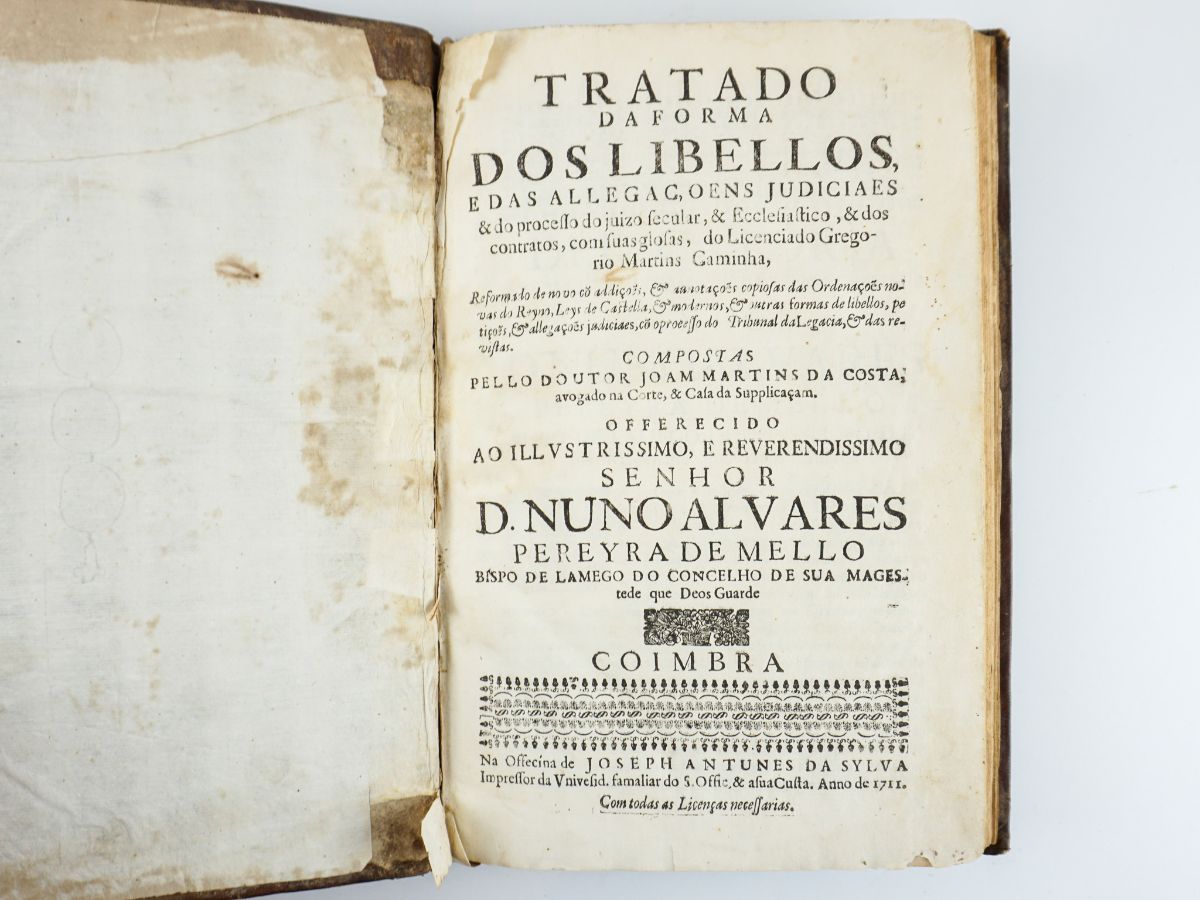 TRATADO
DA FORMA
DOS LIBELLOS,
E DAS ALLEGAC,OENS JUDICIAES
& do processo do juizo secular, & Ecclesiastico, & dos
contratos, com suas glosas, do Licenciado Grego-
rio Martins Caminha,
Reformado de novo cõ addiçoẽs, & annotações copiosas das Ordenações no-
vas do Reyno, Leys de Castella, & modernos, & outras formas de libellos, pe
tiçoẽs, & allegações judiciaes, cõ o processo do Tribunal da Legacia, & das re-
vistas.
COMPOSTAS
PELLO DOUTOR JOAM MARTINS DA COSTA;
avogado na Corte, & Casa da Supplicaçam.
OFFERECIDO
AO ILLVSTRISSIMO, E REVERENDISSIMO
SENHOR
D. NUNO ALVARES
PEREYRA DE MELLO
BISPO DE LAMEGO DO CONCELHO DE SUA MAGES-
tede que Deos Guarde
COIMBRA
Na Offecina de JOSEPH ANTUNES DA SYLVA
Impressor da Vnivesid. famaliar do S. Offic, & asua Custa. Anno de 1711.
Com todas as Licenças necessarias.